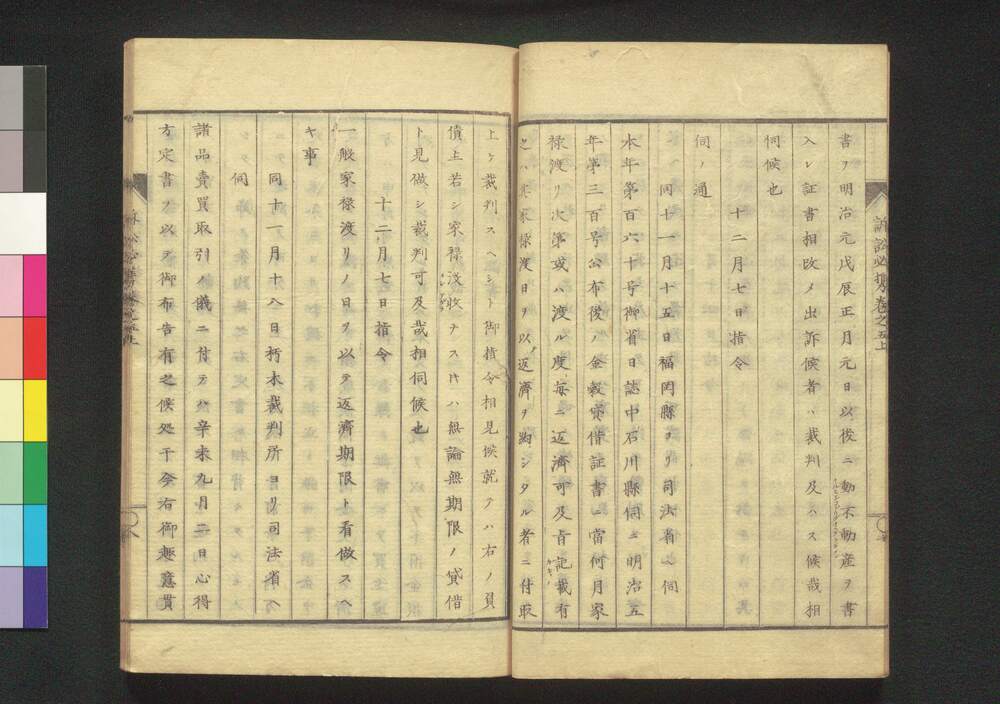 訴訟必携巻之五上
書ヲ明治元戊辰正月元日以後ニ動不動産ヲ書
入レ証書相改メ出訴候者ハ裁判及ハス候哉相
伺候也
十二月七日指令
伺ノ通
同十一月十五日福岡縣ヨリ司法省ヘ伺
本年第百六十号御省日誌中石川縣伺ニ明治五
年第三百号公布後ノ金穀貸借証書ニ當何月家
禄渡リ次第或ハ渡ル度毎ニ返濟可及旨記載有
之ハ其家禄渡日ヲ以返濟ヲ約シタル者ニ付取
上ケ裁判スヘシト御指令相見候就テハ右ノ負
債主若シ家禄没收ナス時ハ無論無期限ノ貸借
ト見做シ裁判可及哉相伺候也
十二月七日指令
一般家禄渡リノ日ヲ以テ返濟期限ト看做スヘ
キ事
同十一月十八日栃木裁判所ヨリ司法省ヘ
伺
諸品賣買取引ノ儀ニ付テハ辛未九月二日心得
方定書ヲ以テ御布告有之候処于今右御趣意貫